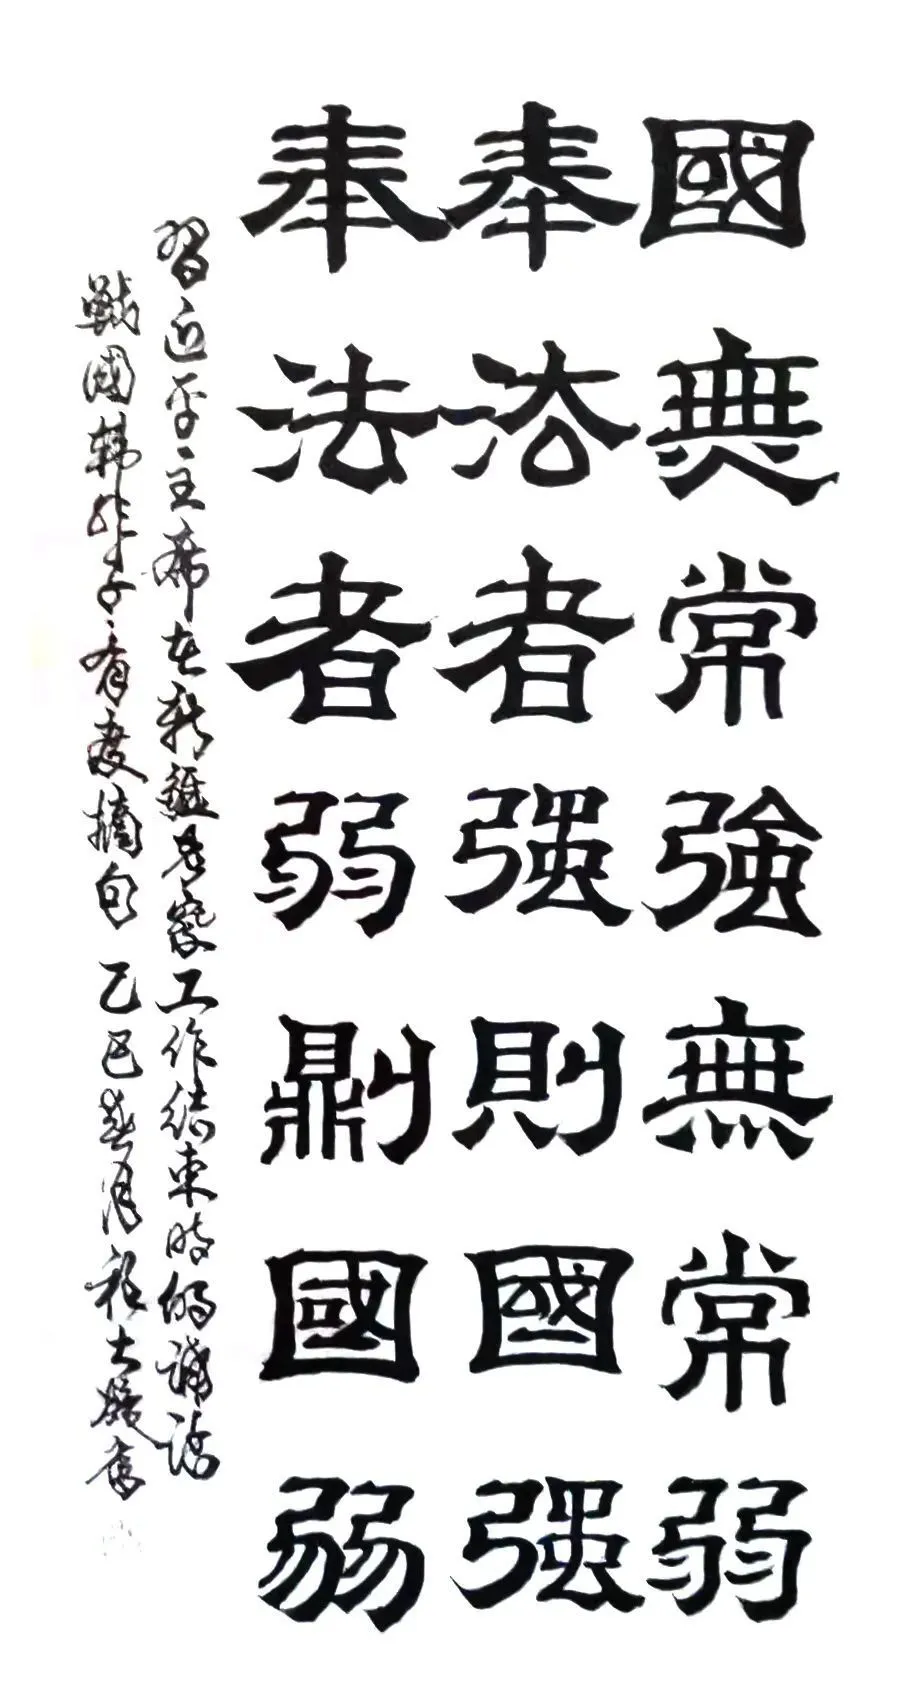 國無常強無常弱
奉法者强則國强
奉法者弱𠟭國弱
習近平主席在新疆考察工作結束時的講話
戰國韓非子有度摘句 乙巳春月程大書